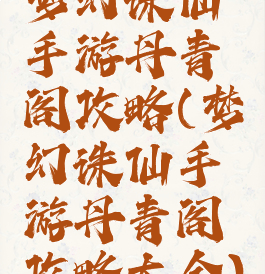 梦幻诛仙
手游丹青
阁攻略(梦
幻诛仙手
游丹青阁
攻略大全)